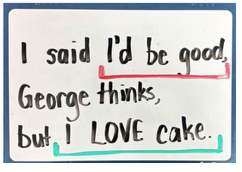 I said I'd be good,
George thinks,
but I LOVE cake.